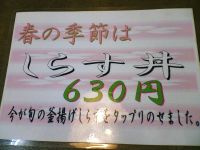 春の季節は
しらす丼
630円
今が旬の釜揚げしらすをタップリのせました。